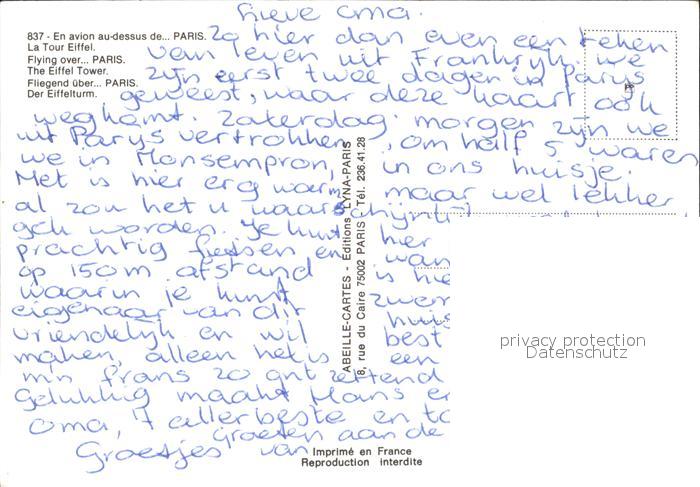 Lieve oma.
837 - En avion au-dessus de... PARIS.
La Tour Eiffel.
Flying over... PARIS.
The Eiffel Tower.
Fliegend über... PARIS.
Der Eiffelturm.
Zo hier dan even een teken
van leven uit Frankryk. we
zyn eerst twee dagen in Parys
geweest, waar deze kaart ook
weg komt. Zaterdag morgen zyn we
uit Parys vertrokken, om half 5 waren
we in Monsempron, in ons huisje.
Met is hier erg warm, maar wel lekker
al zou het u waarschijnli
gek worden. Je kunt hier
prachtig fietsen en wan
op 150m afstand is hie
waarin je kunt zwem
eigenaar van dit huis
vriendelyk en wil best
maken, alleen het is een
mn frans zo ontzettend
gelukkig maakt Hans er
oma, 't allerbeste en to
groeten aan de
Groetjes van
ABEILLE-CARTES - Editions LYNA-PARIS
8, rue du Caire 75002 PARIS Tél. 236.41.28
Imprimé en France
Reproduction interdite
privacy protection
Datenschutz